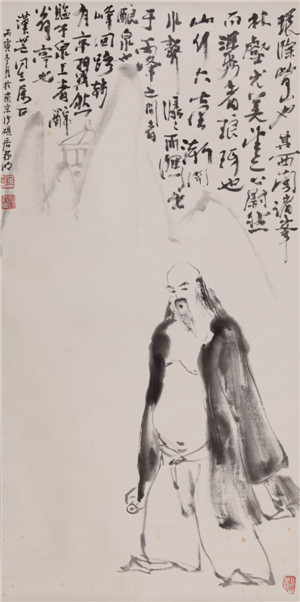 環滁皆山也其西南諸峰
林壑尤美望之蔚然
而深秀者琅琊也
山行六七里漸聞
水聲潺潺而瀉出
于兩峰之間者
釀泉也
峰回路轉
有亭翼然
臨于泉上者醉
翁亭也
丙寅冬月於南京